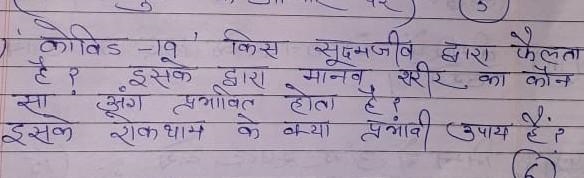 'कोविड -19' किस सूक्ष्मजीव द्वारा फैलता
है ? इसके द्वारा मानव शरीर का कौन
सा अंग प्रभावित होता है ?
इसके रोकथाम के क्या प्रभावी उपाय हैं ?